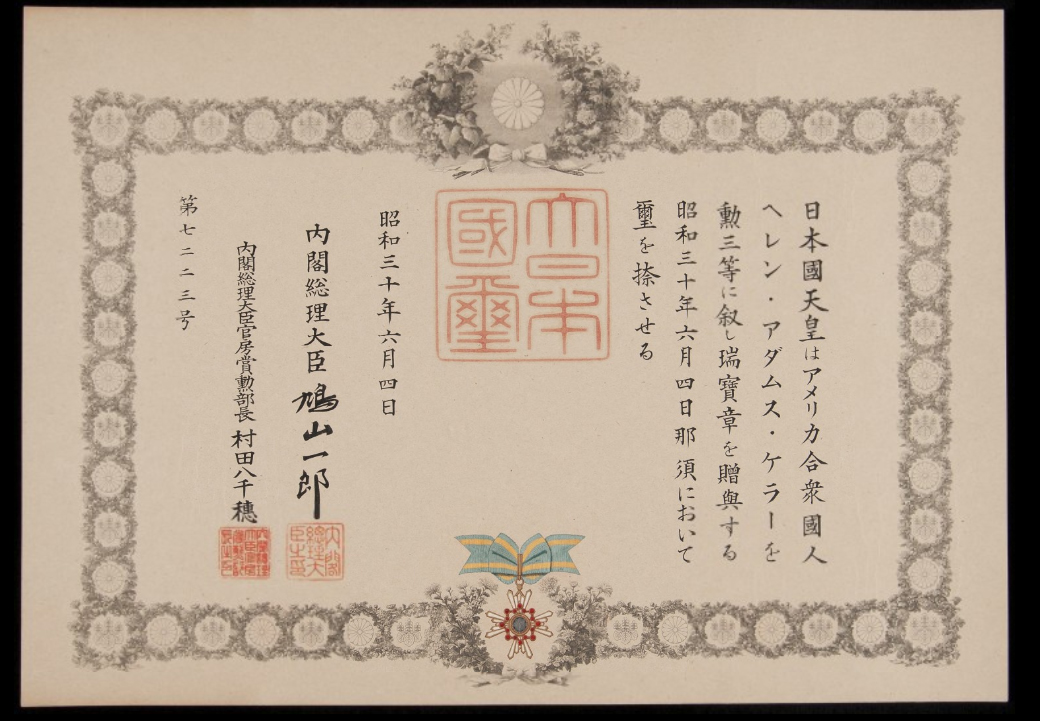 日本國天皇はアメリカ合衆國人
ヘレン・アダムス・ケラーを
勲三等に叙し瑞寶章を贈與する
昭和三十年六月四日那須において
璽を捺させる
大日本
國璽
昭和三十年六月四日
内閣総理大臣 鳩山一郎
内閣総理大臣官房賞勲部長 村田八千穂
第七二二三号